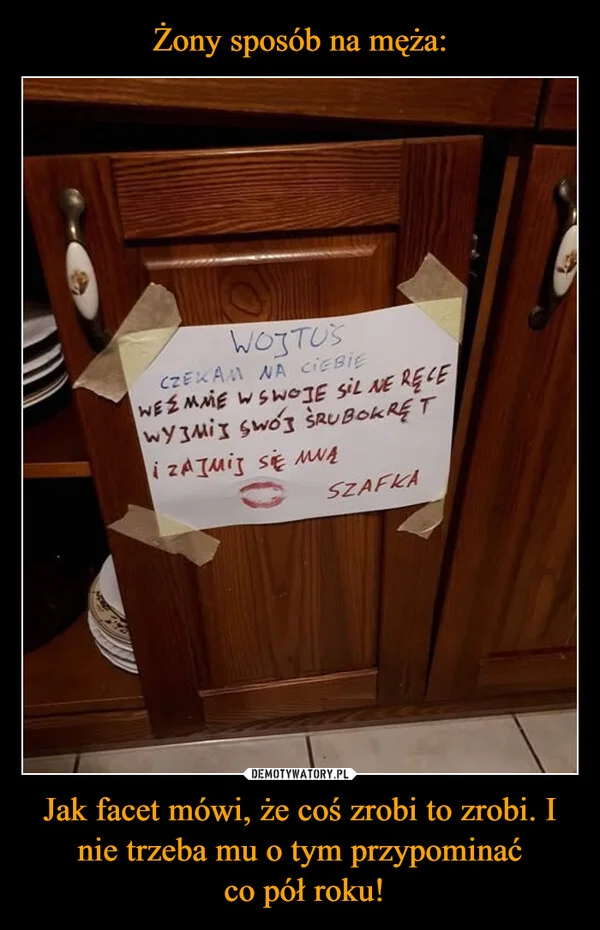 Żony sposób na męża:
WOJTUŚ
CZEKAM NA CIEBIE
WEŹ MNIE W SWOJE SILNE RĘCE
WYJMIJ SWÓJ ŚRUBOKRĘT
i ZAJMIJ SIĘ MNĄ
SZAFKA
DEMOTYWATORY.PL
Jak facet mówi, że coś zrobi to zrobi. I
nie trzeba mu o tym przypominać
co pół roku!